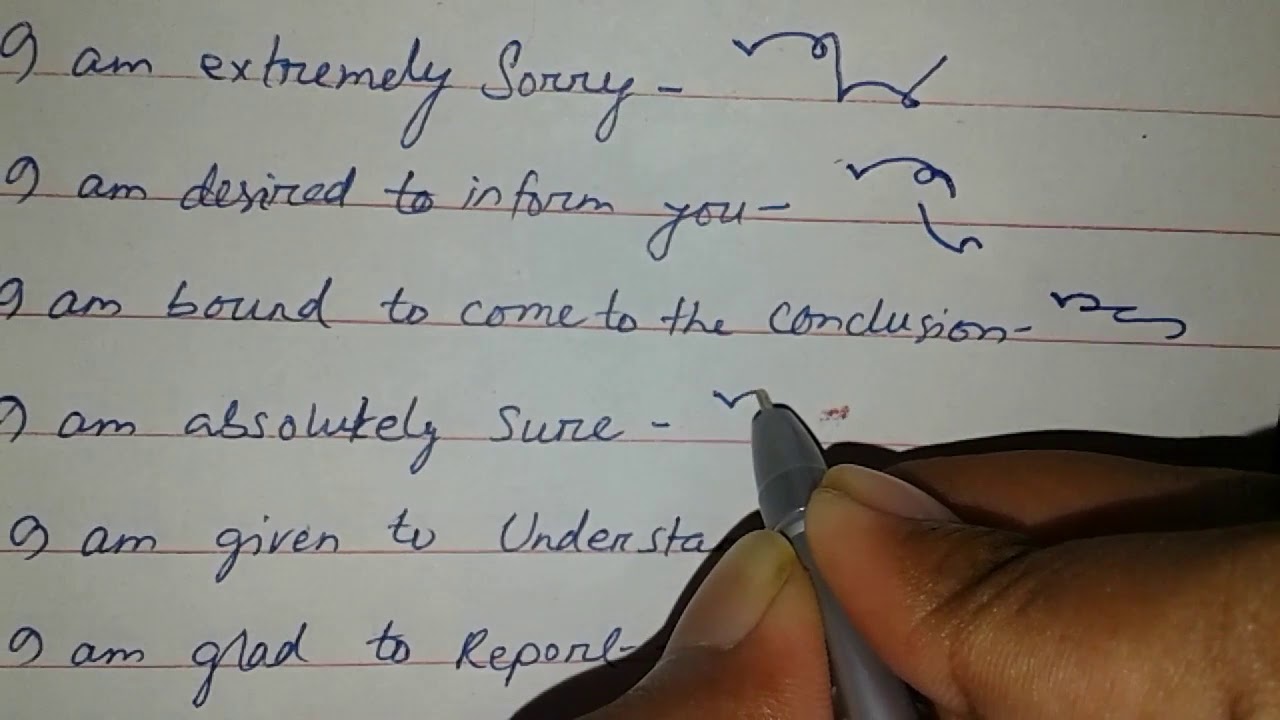 I am extremely Sorry -
I am desired to inform you -
I am bound to come to the conclusion -
I am absolutely sure -
I am given to Understa
I am glad to Report -